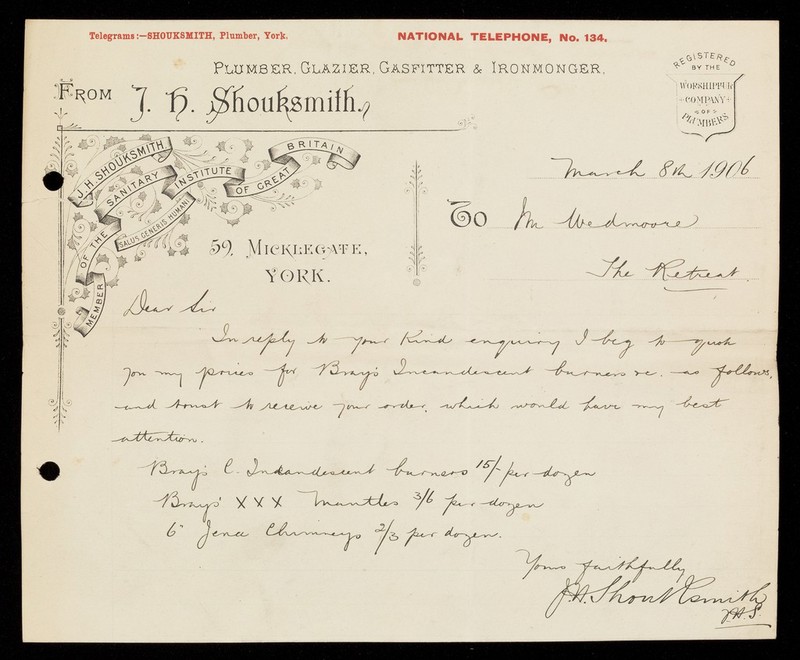 Telegrams:—SHOUKSMITH, Plumber, York.
NATIONAL TELEPHONE, No. 134.
PLUMBER, GLAZIER, GASFITTER & IRONMONGER,
FROM J. H. Shouksmith.
REGISTERED
BY THE
WORSHIPFUL
COMPANY
OF
PLUMBERS
J.H. SHOUKSMITH.
MEMBER OF THE SANITARY INSTITUTE OF GREAT BRITAIN
SALUS GENERIS HUMANI
59, MICKLEGATE,
YORK.
March 8th 1906
To Mr Wedmoore
The Retreat.
Dear Sir
In reply to your Kind enquiry I beg to quote
you my prices for Bray's Incandescent burners &c. as follows,
and trust to receive your order, which would have my best
attention.
Bray's C. Incandescent burners 15/- per dozen
Brays' XXX Mantles 3/6 per dozen
6" Jena Chimneys 2/3 per dozen.
Yours faithfully
J.H. Shouksmith